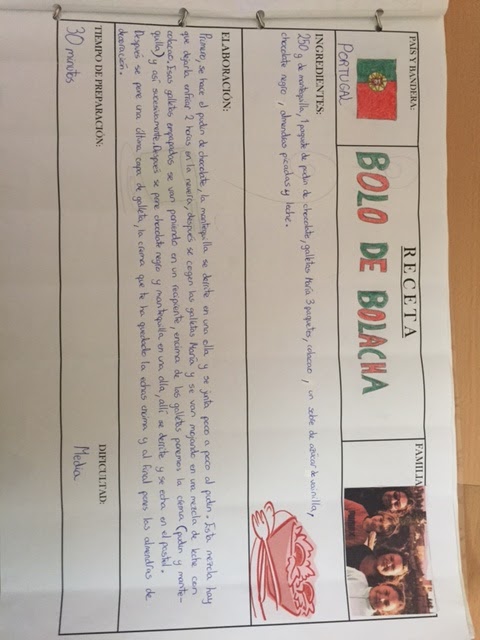 PAIS Y BANDERA:
PORTUGAL
RECETA
BOLO DE BOLACHA
FAMILIA
INGREDIENTES:
250 g de mantequilla, 1 paquete de pudin de chocolate, galletas María 3 paquetes, colacao, un sobre de azúcar de vainilla,
chocolate negro, almendras picadas y leche.
ELABORACIÓN:
Primero, se hace el pudin de chocolate, la mantequilla se derrite en una olla y se junta poco a poco al pudin. Esta mezcla hay
que dejarla enfriar 2 horas en la nevera, después se cogen las galletas María y se van mojando en una mezcla de leche con
colacao. Esas galletas empapadas se van poniendo en un recipiente, encima de las galletas ponemos la crema (pudin y mante-
quilla) y así sucesivamente. Después se pone chocolate negro y mantequilla en una olla, allí se derrite y se echa en el pastel.
Después se pone una última capa de galleta, la crema que te ha quedado la echas encima y al final pones las almendras de
decoración.
TIEMPO DE PREPARACIÓN:
30 minutos
DIFICULTAD:
Media